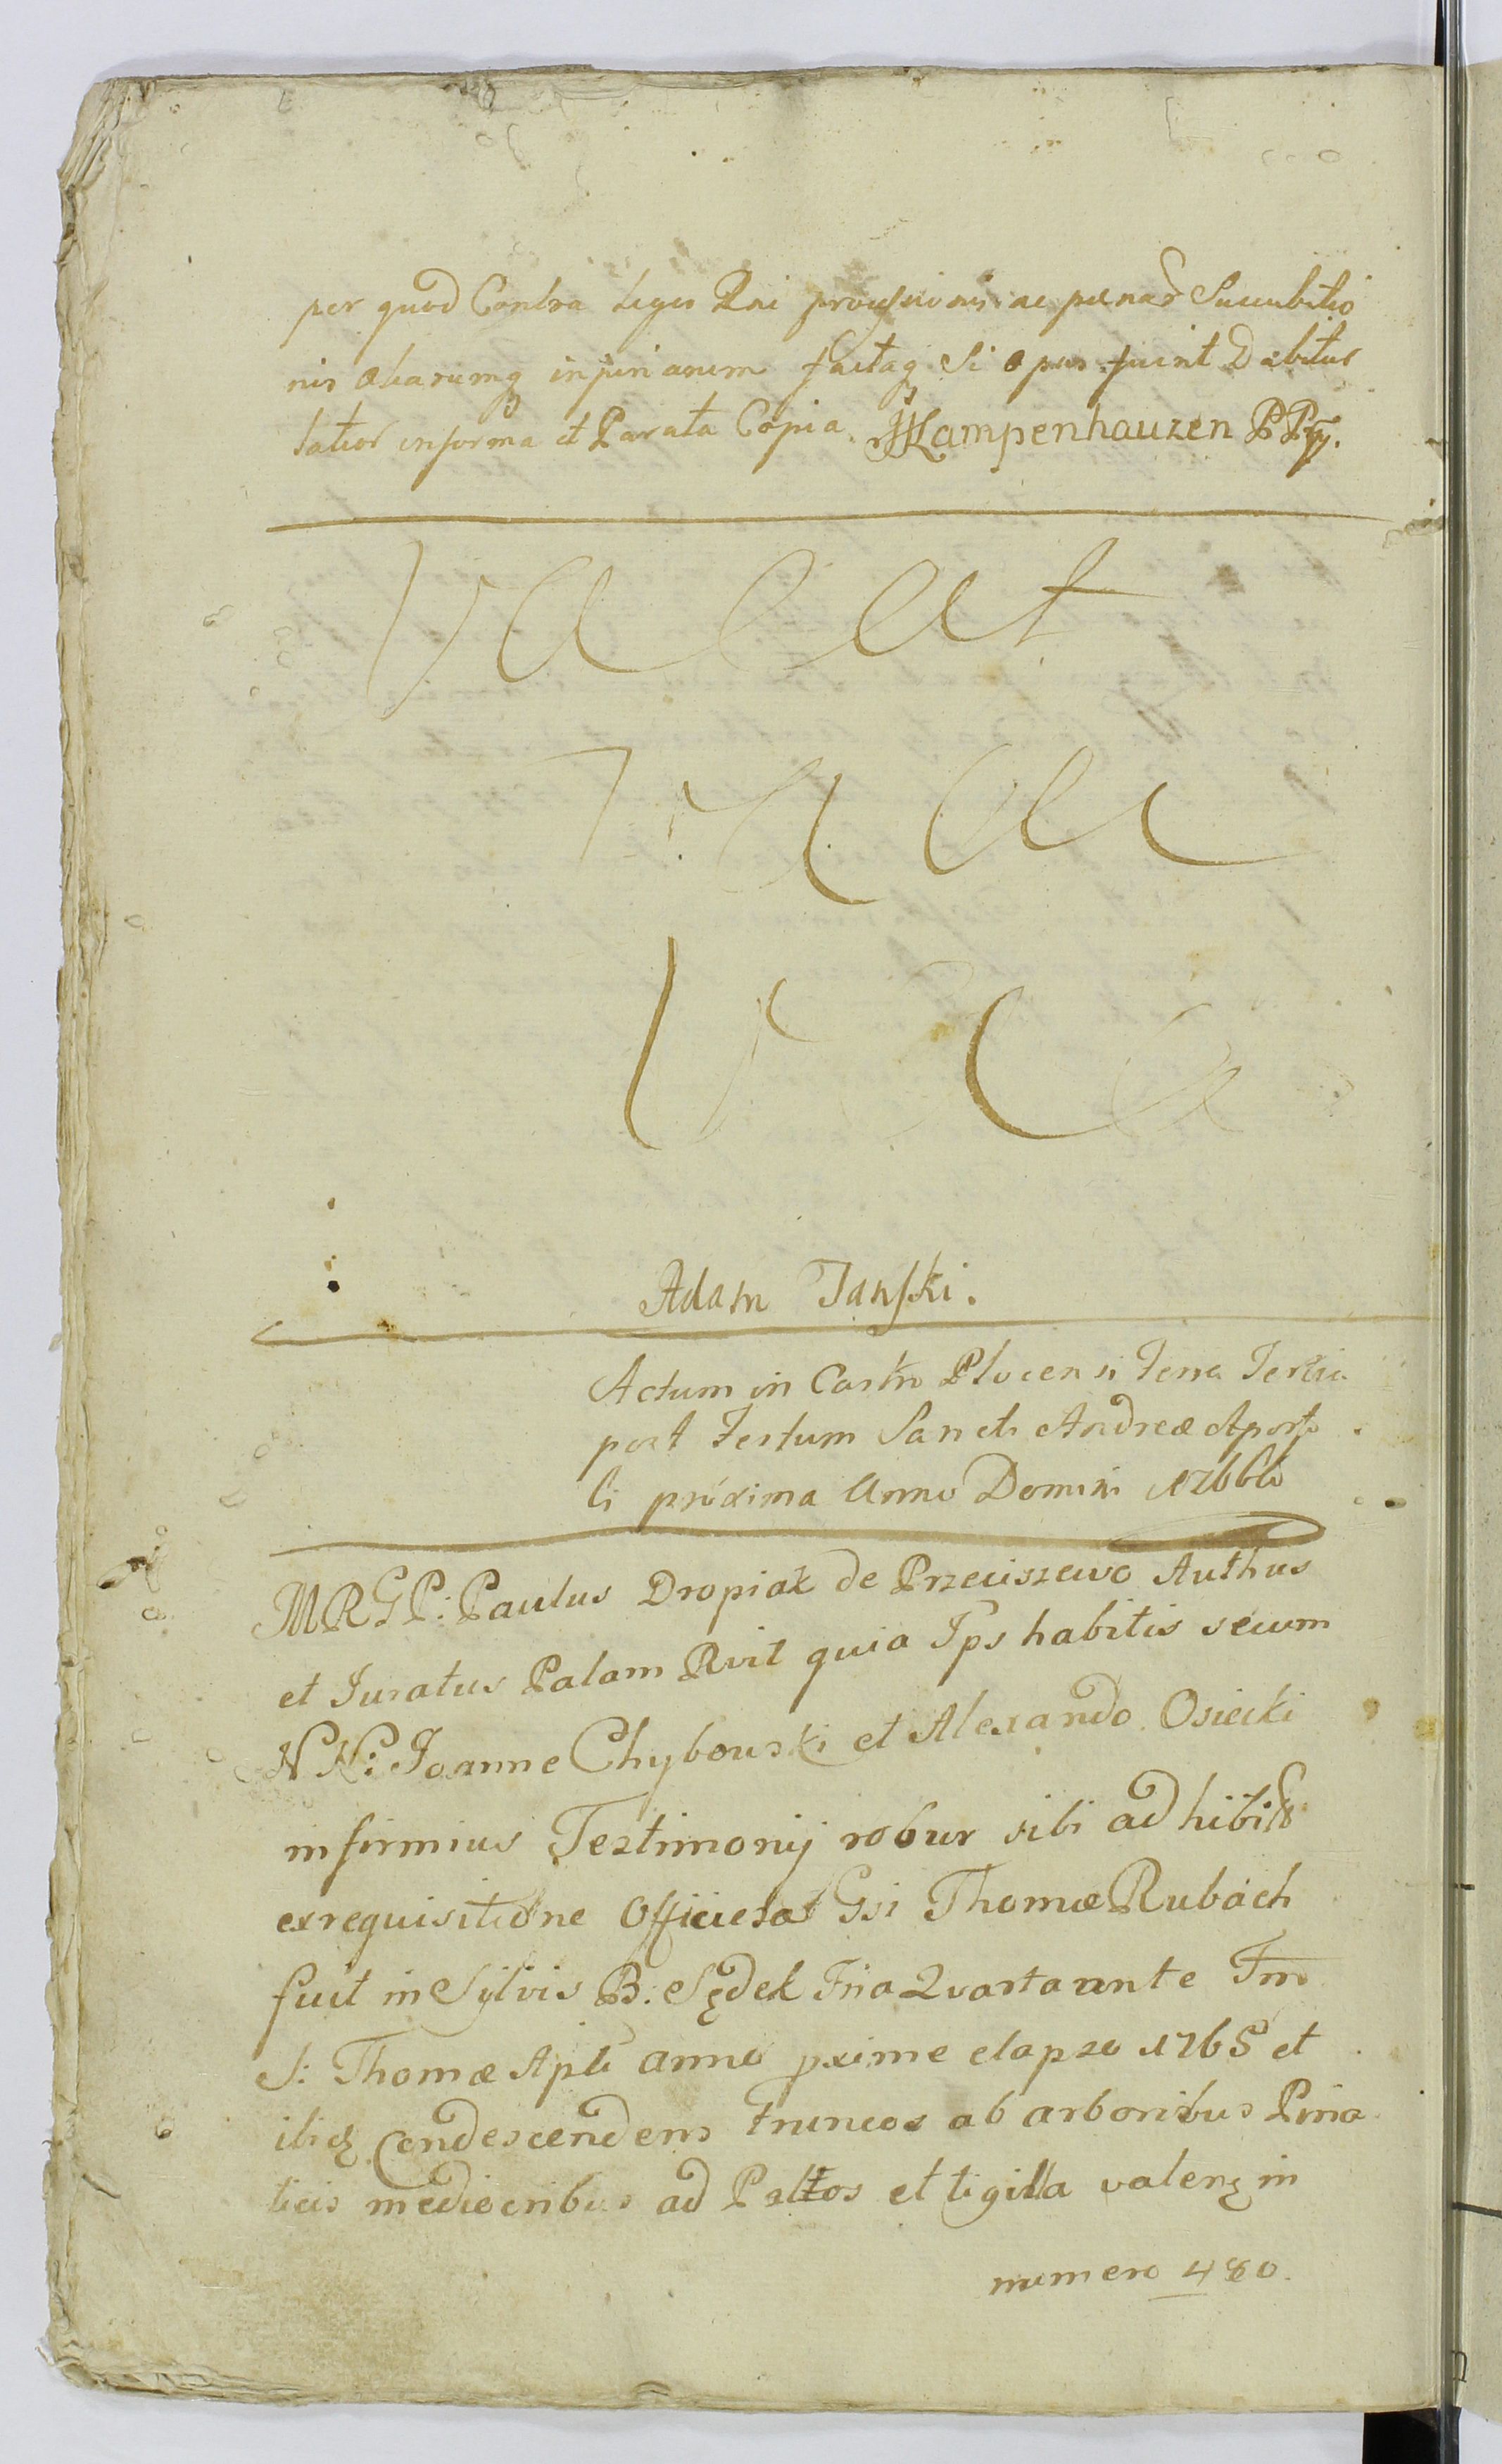 per quod Contra Leges Rni provisionis ac pænas Succubitio
nis aliarumq injuriarum factaq si opus fuerit Dabitur
latior informa et Parata Copia. JKampenhauzen PPą.
Vacat
Adam Janski.
Actum in Castro Plocensi Feria Tertia
post Festum Sancti Andreæ Aposto
li próxima Anno Domini 1766to
MRGP: Paulus Dropiak de Przeciszewo Authus
et Juratus Palam Rvit quia Ips habitis secum
NN: Joanne Chybowski et Alexandro Osiecki
in firmius Testimonij robur sibi adhibitis
ex requisitione Officiosa Gsi Thomæ Rubach
fuit in Sylvis B: Sędek Fria Quarta ante Fm
S: Thomæ Apli anno pxime elapso 1765 et
ibiq condescendens truncos ab arboribus Pina
ticis mediocribus ad Paltos et tigilla valenq in
numero 480.